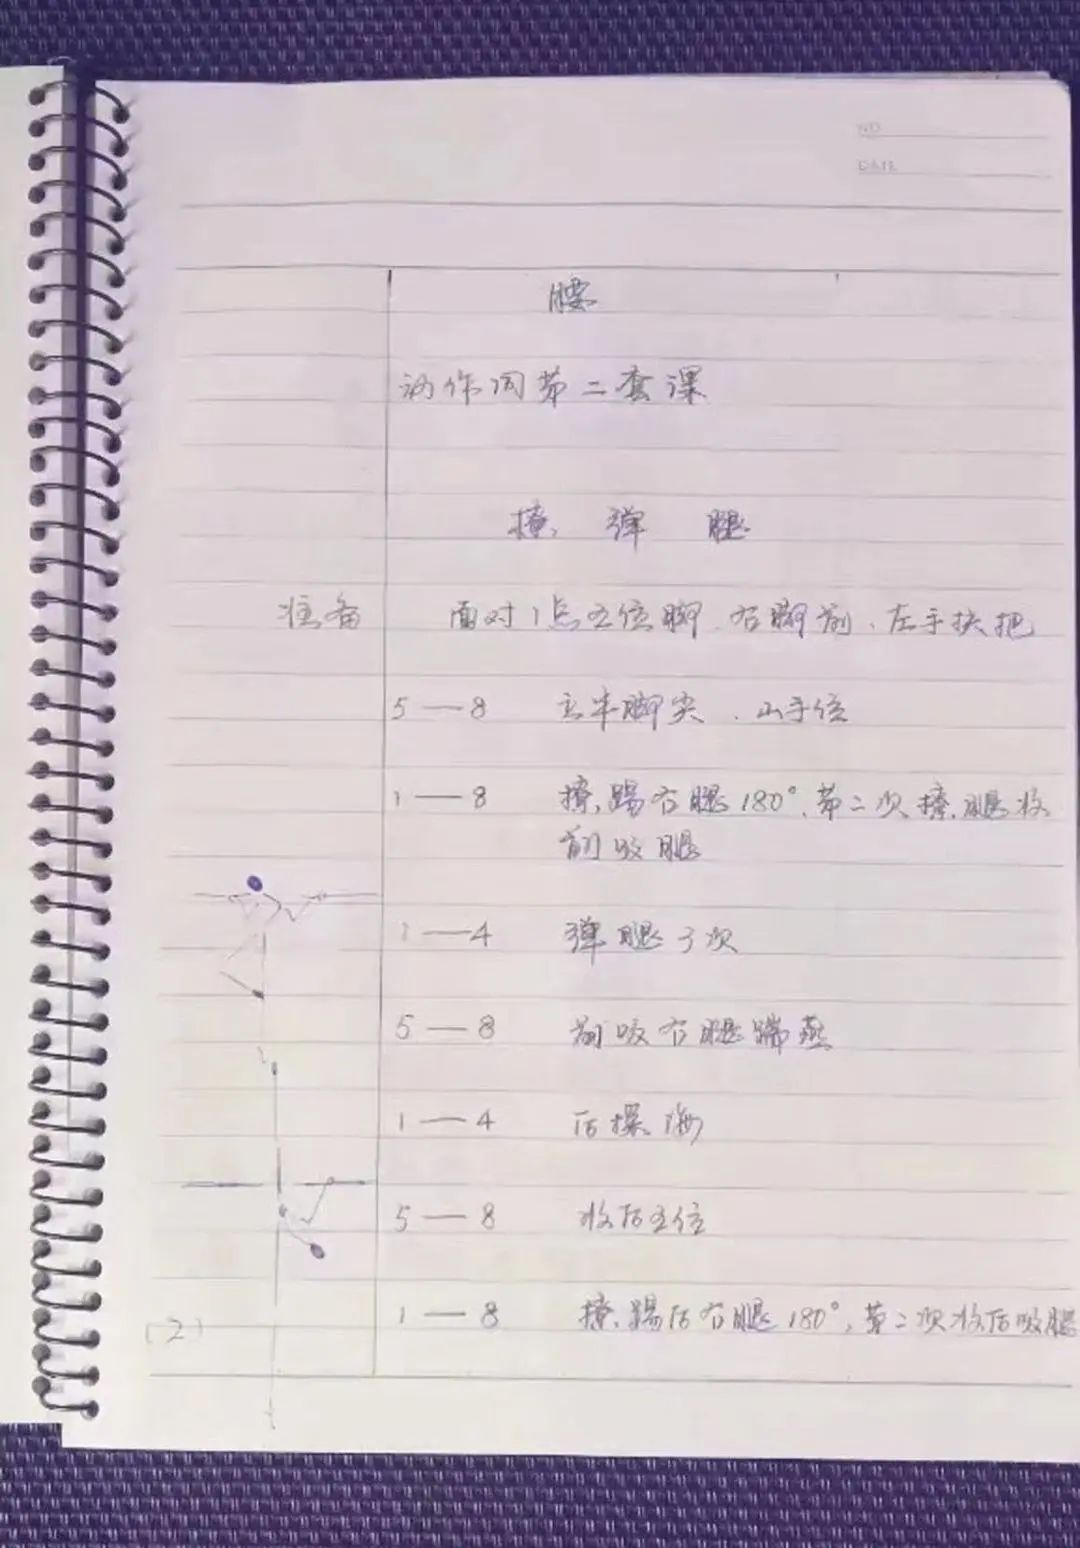 NO
DATE
腰
动作同第二套课
撩、弹 腿
准备 面对1点五位脚、右脚前、左手扶把
5—8 立半脚尖、山手位
1—8 撩、踢右腿180°、第二次撩、腿收
前吸腿
1—4 弹腿3次
5—8 前吸右腿踹燕
1—4 后探海
5—8 收后五位
(2) 1—8 撩、踢后右腿180°、第二次收后吸腿